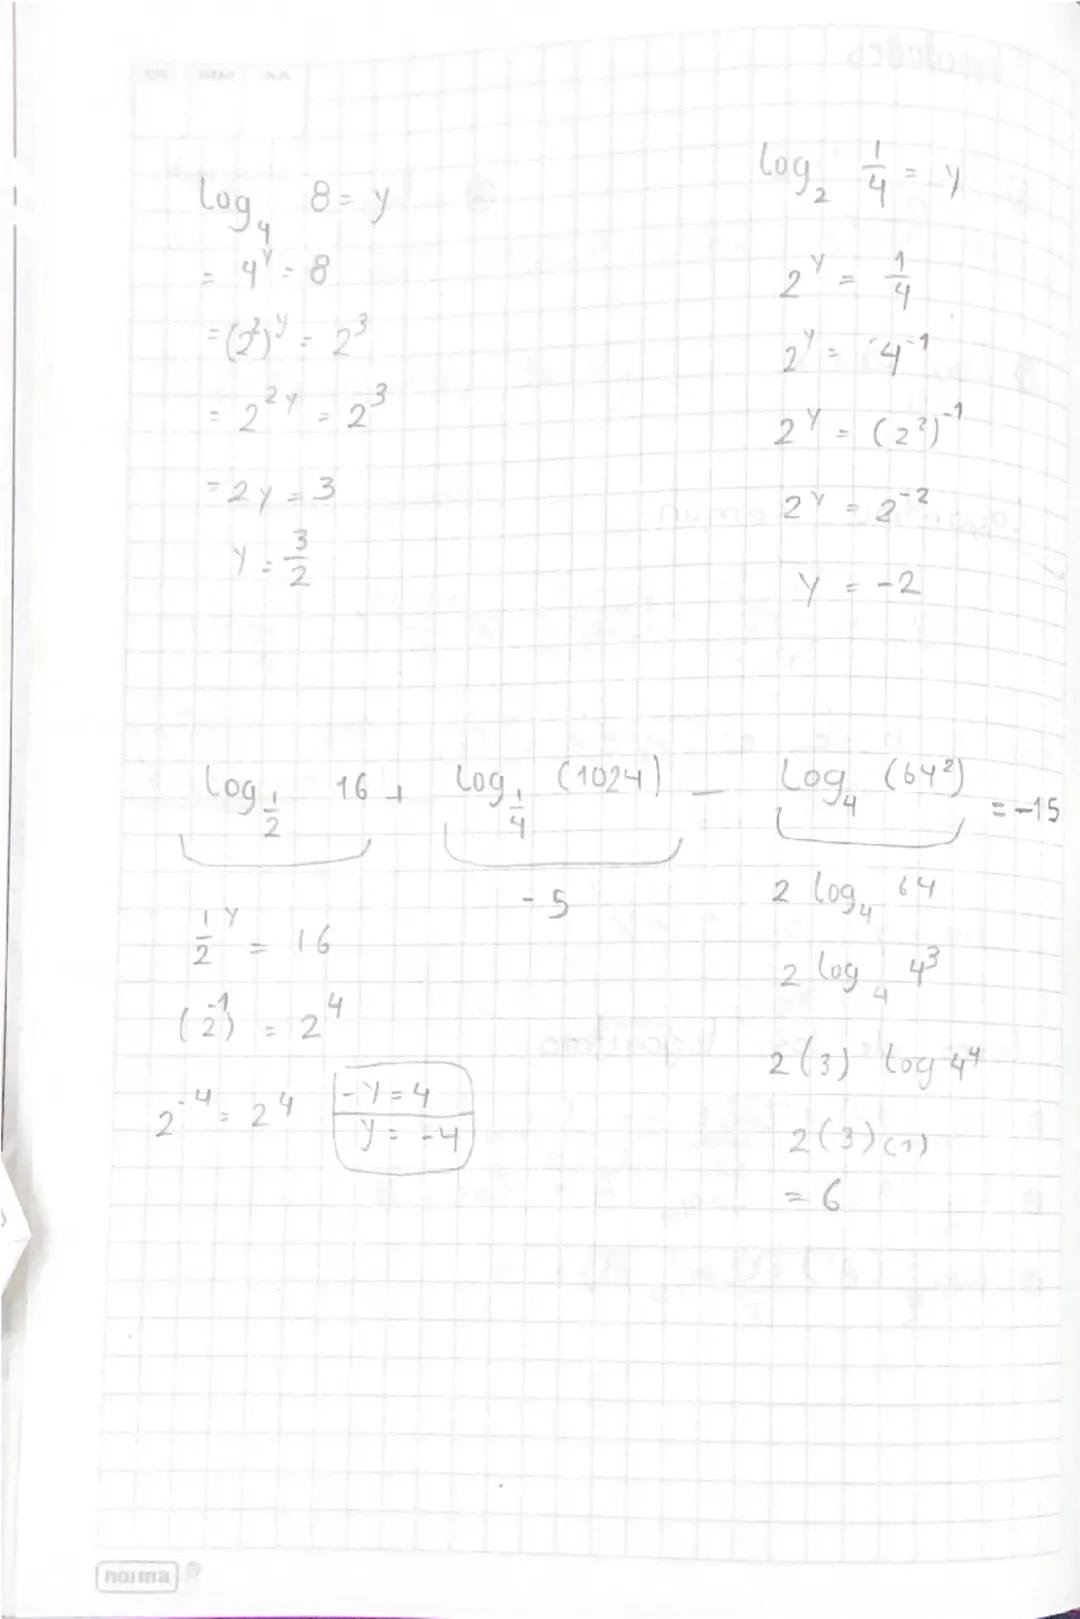 log₄ 8 = y
= 4^y = 8
= (2²)^y = 2³
= 2^2y = 2³
= 2y = 3
y = 3/2
log₂ 1/4 = y
2^y = 1/4
2^y = 4^-1
2^y = (2²)^-1
2^y = 2^-2
y = -2
log_1/2 16 + log_1/4 (1024) - log₄ (64²) = -15
1/2^y = 16
(2^-1) = 2^4
2^-4 = 2^4
-y = 4
y = -4
-5
2 log₄ 64
2 log₄ 4³
2(3) log 4^4
2(3)(1)
= 6
norma